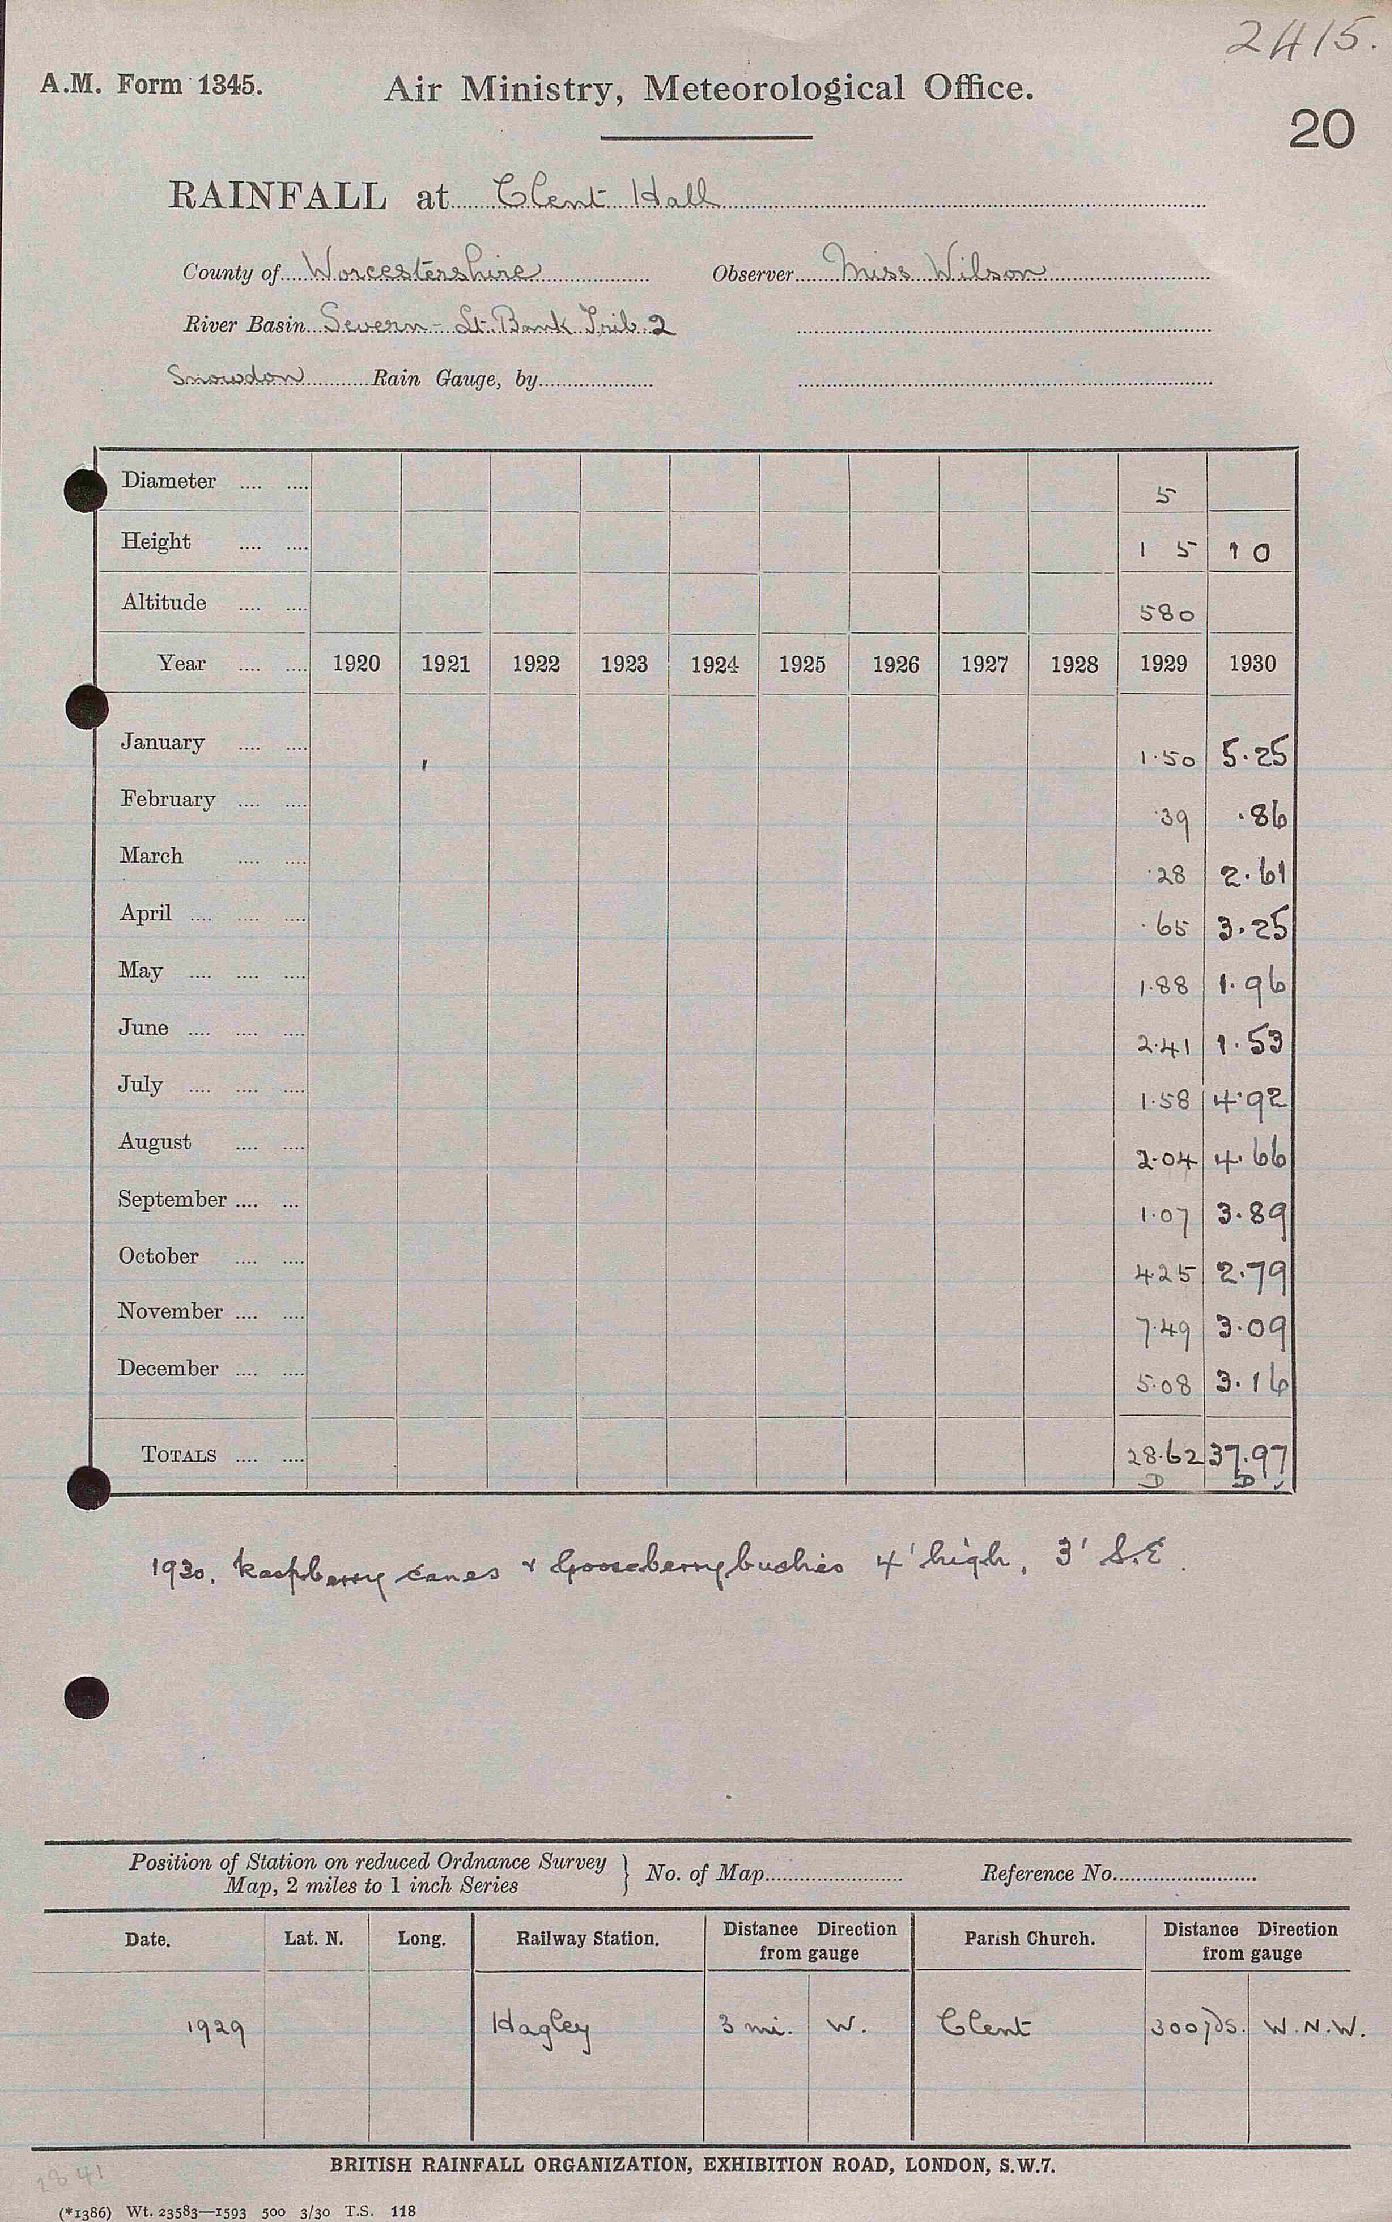 2415.
A.M. Form 1345. Air Ministry, Meteorological Office.
20
RAINFALL at Clent Hall
County of Worcestershire Observer Miss Wilson
River Basin Severn - Lt. Bank Trib. 2
Snowdon Rain Gauge, by
Diameter 5
Height 1 5 1 0
Altitude 580
Year 1920 1921 1922 1923 1924 1925 1926 1927 1928 1929 1930
January 1.50 5.25
February .39 .86
March .28 2.61
April .65 3.25
May 1.88 1.96
June 2.41 1.53
July 1.58 4.92
August 2.04 4.66
September 1.07 3.89
October 4.25 2.79
November 7.49 3.09
December 5.08 3.16
TOTALS 28.62 37.97
D D
1930. Raspberry canes & Gooseberry bushes 4' high, 3' S.E.
Position of Station on reduced Ordnance Survey Map, 2 miles to 1 inch Series } No. of Map Reference No.
Date. Lat. N. Long. Railway Station. Distance Direction from gauge Parish Church. Distance Direction from gauge
1929 Hagley 3 mi. W. Clent 300 yds. W.N.W.
BRITISH RAINFALL ORGANIZATION, EXHIBITION ROAD, LONDON, S.W.7.
1841
(*1386) Wt. 23583—1593 500 3/30 T.S. 118